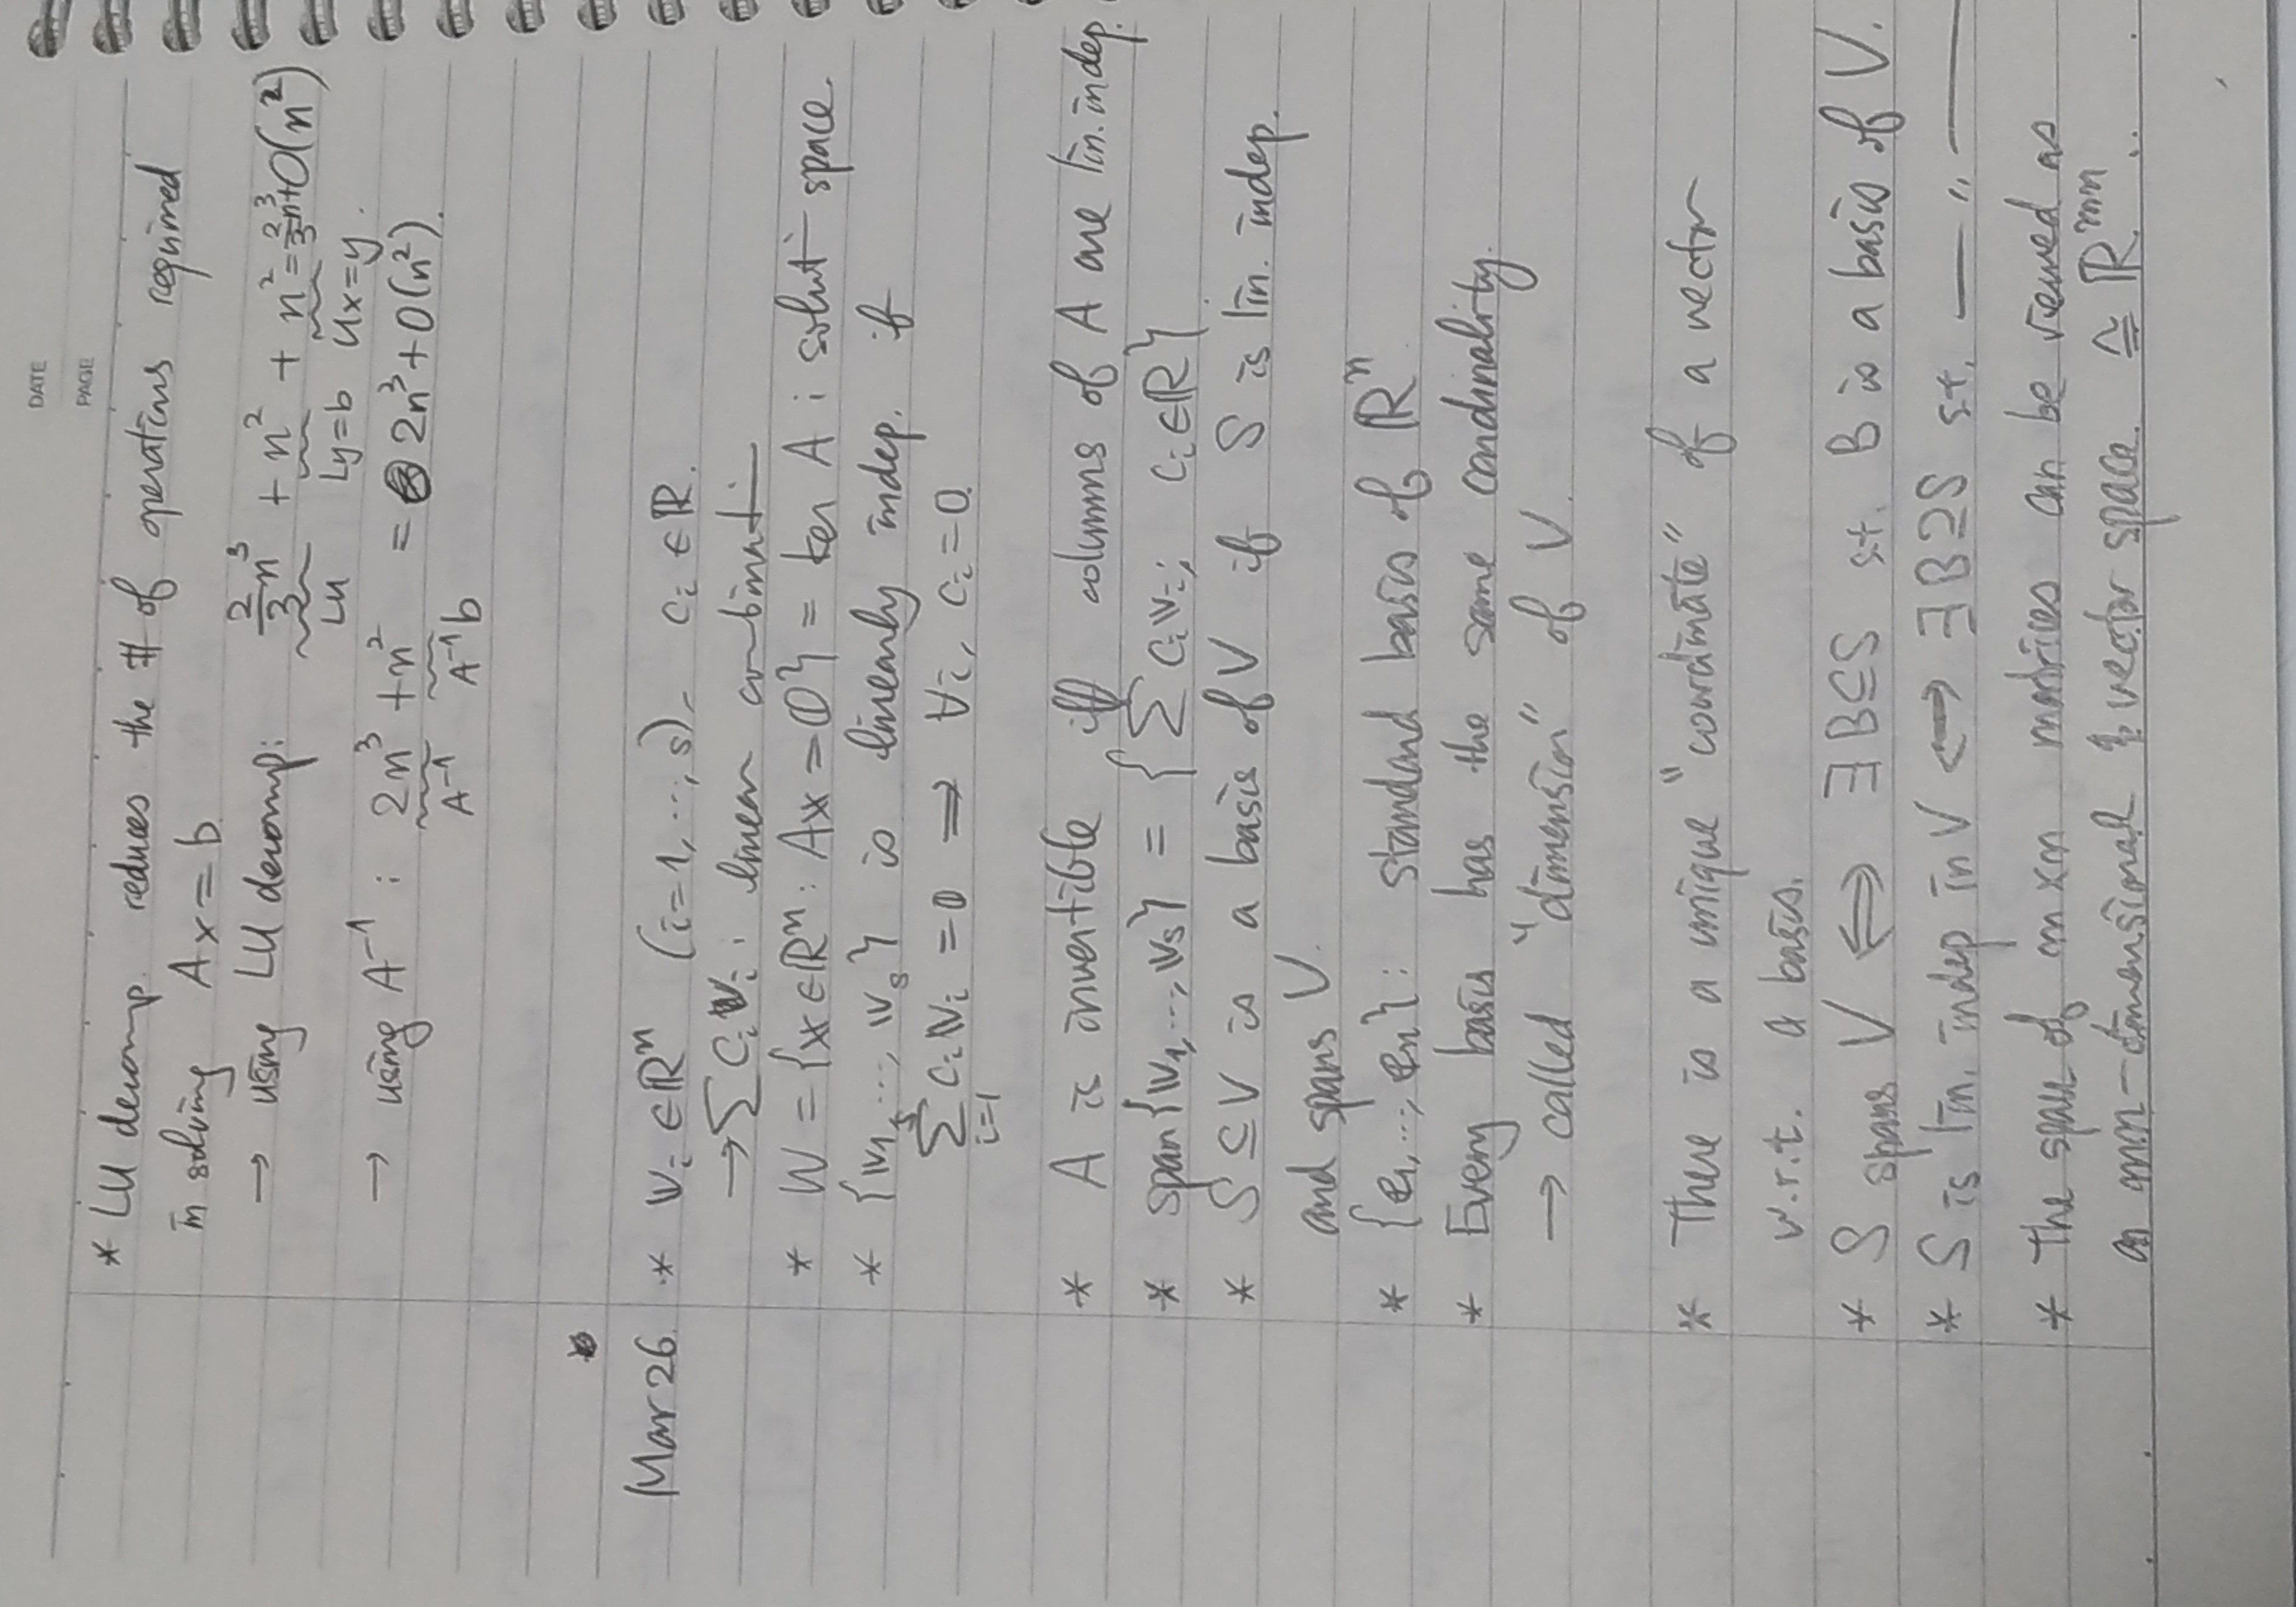 DATE
PAGE
* LU decomp. reduces the # of operations required
in solving Ax = b.
→ using LU decomp: 2/3 n³ + n² + n² = 2/3 n³ + O(n²)
LU Ly=b Ux=y.
→ using A⁻¹ : 2n³ + n² = 2n³ + O(n²).
A⁻¹ A⁻¹b
Mar 26. * 𝕧ᵢ ∈ ℝⁿ (i=1, ..., s), cᵢ ∈ ℝ.
→ ∑ cᵢ𝕧ᵢ : linear combinati—
* W = {𝕩 ∈ ℝⁿ : A𝕩 = 𝟘} = ker A : soluti— space.
* {𝕧₁, ..., 𝕧ₛ} is linearly indep. if
∑ᵢ₌₁ˢ cᵢ𝕧ᵢ = 𝟘 ⟹ ∀i, cᵢ = 0.
* A is invertible iff columns of A are lin. indep.
* span{𝕧₁, ..., 𝕧ₛ} = {∑ cᵢ𝕧ᵢ ; cᵢ ∈ ℝ}.
* S ⊆ V is a basis of V if S is lin. indep.
and spans V.
* {𝕖₁, ..., 𝕖ₙ} : standard basis of ℝⁿ
* Every basis has the same cardinality.
→ called "dimension" of V.
* There is a unique "coordinate" of a vector
w.r.t. a basis.
* S spans V ⟺ ∃B⊆S s.t. B is a basis of V.
* S is lin. indep in V ⟺ ∃B⊇S s.t. — 〃 —
* The space of m×n matrices can be viewed as
an mn-dimensional vector space. ≅ ℝᵐⁿ